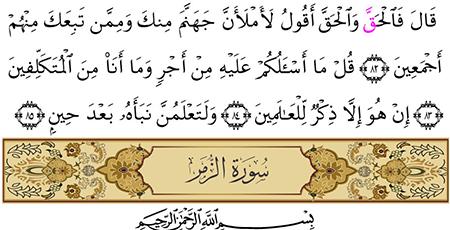 قَالَ فَالْحَقَّ وَالْحَقَّ أَقُولُ لَأَمْلَأَنَّ جَهَنَّمَ مِنكَ وَمِمَّن تَبِعَكَ مِنْهُمْ
أَجْمَعِينَ ٨٢ قُلْ مَا أَسْـَٔلُكُمْ عَلَيْهِ مِنْ أَجْرٍ وَمَا أَنَا۠ مِنَ الْمُتَكَلِّفِينَ
٨٣ إِنْ هُوَ إِلَّا ذِكْرٌ لِّلْعَالَمِينَ ٨٤ وَلَتَعْلَمُنَّ نَبَأَهُۥ بَعْدَ حِينٍ ٨٥
سُورَةُ الزُّمَرِ
بِسْمِ اللَّهِ الرَّحْمَٰنِ الرَّحِيمِ